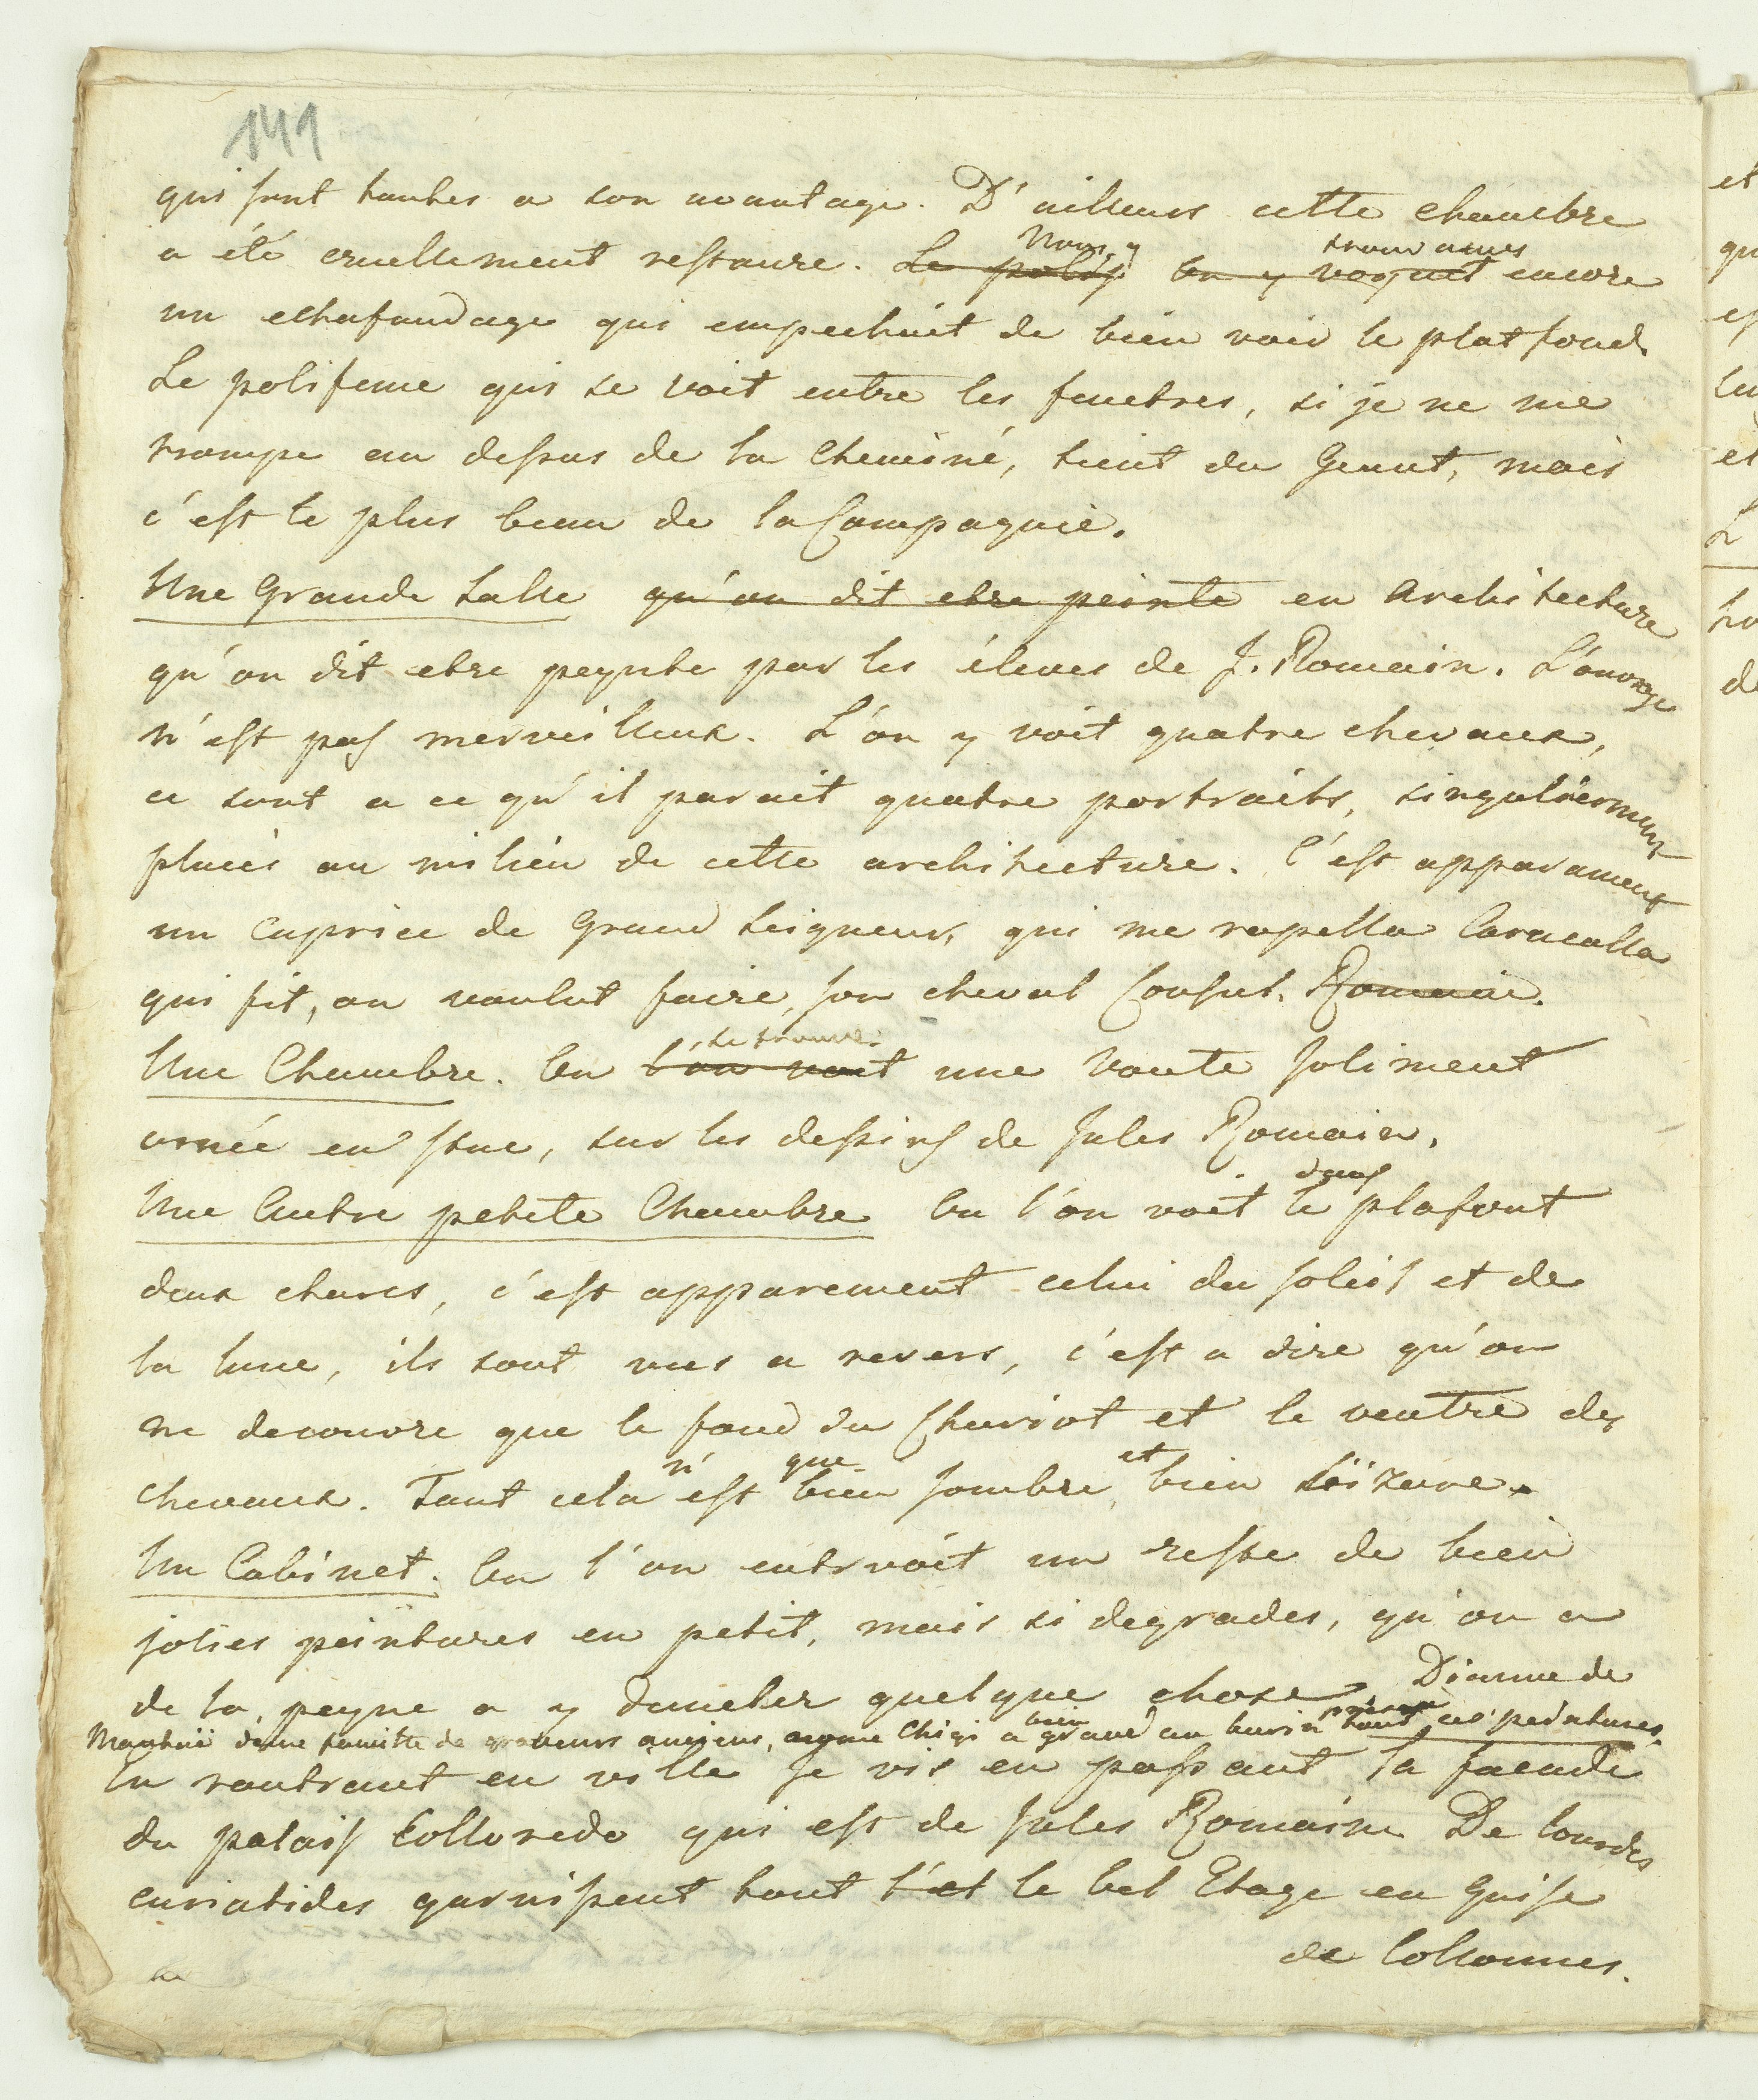 149
qui sont toutes a son avantage. D'ailleurs cette chambre
a été cruellement restaure. Le polif Nous y On y voyait trouvames encore
un echafaudage qui empechait de bien voir le platfond.
Le polifeme qui se voit entre les fenetres, si je ne me
trompe au dessus de la cheminé, tient du Geant, mais
c'est le plus beau de la Compagnie.
Une Grande Salle qu'on dit etre peinte en Architecture
qu'on dit etre peynte par les éleves de J. Romain. L'ouvrage
n'est pas merveilleux. L'on y voit quatre chevaux,
ce sont a ce qu'il parait quatre portraits, singulierement
placés au milieu de cette architecture. C'est apparament
un caprice de Grand Seigneur, qui me rapella Caracalla
qui fit, ou voulut faire, son cheval Consul. Romain.
Une Chambre. Ou l'on voit se trouve une Voute joliment
ornée en stuc, sur les dessins de Jules Romain.
Une Autre petite Chambre Ou l'on voit dans le plafont
deux chares, c'est apparement celui du soleil et de
la lune, ils sont vus a revers, c'est a dire qu'on
ne decouvre que le fond du Chariot et le ventre des
chevaux. Tout cela n'est que bien sombre, et bien bizare.
Un Cabinet. Ou l'on entrvoit un reste de bien
jolies peintures en petit, mais si degrades, qu'on a
de la peyne a y demeler quelque chose. Dianne de
Mantoue d'une famille de graveurs anciens, Chigi a bien gravé au burin ces peintures.
En rantrant en ville je vis en passant la facade
du palais Colloredo qui est de Jules Romain. De lourdes
cariatides garnissent tout l'et le bel Etage en Guise
de Collonnes.